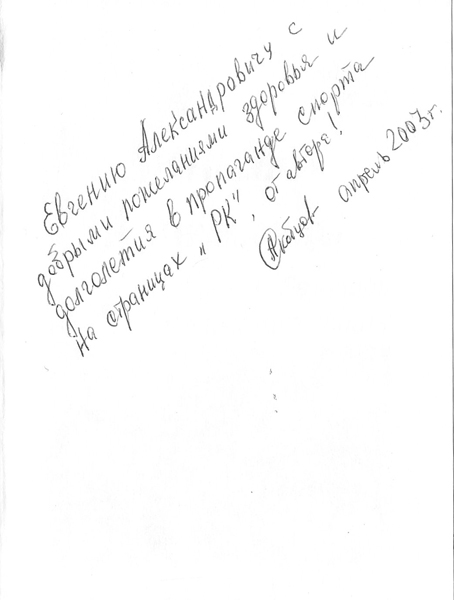 Евгению Александровичу с
добрыми пожеланиями здоровья и
долголетия в пропаганде спорта
На страницах „РК", от автора!
апрель 2003г.